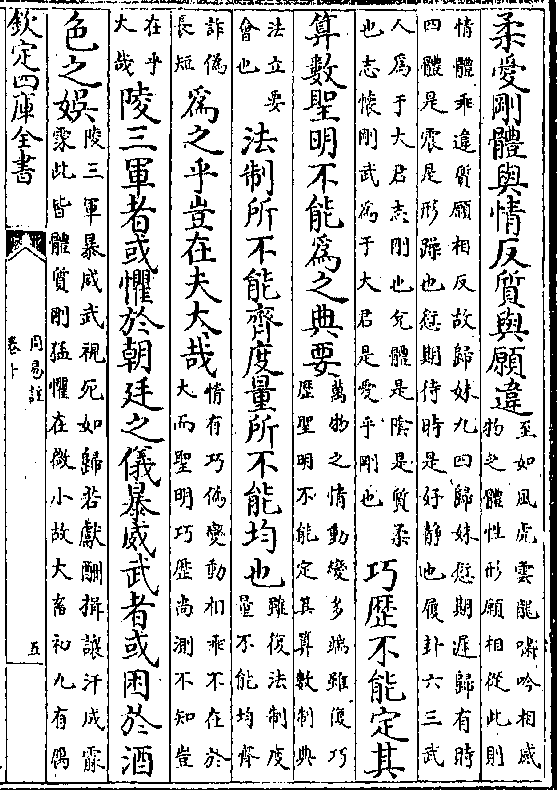 柔愛剛體與情反質與願違
至如風虎雲龍嘯吟相感
物之體性形願相從此則
情體乖違質願相反故歸妹九四歸妹愆期遲歸有時
四體是震是形躁也愆期待時是好静也履卦六三武
人為于大君志剛也兌體是陰是質柔
也志懷剛武為于大君是愛乎剛也
巧歴不能定其
算數聖明不能為之典要
萬物之情動變多端雖復巧
歴聖明不能定其算數制典
法立要
會也
法制所不能齊度量所不能均也
雖復法制度
量不能均齊
詐偽
長短
為之乎豈在夫大哉
情有巧偽變動相乖不在於
大而聖明巧歴尚測不知豈
在乎
大哉
陵三軍者或懼於朝廷之儀暴威武者或困於酒
色之娛
陵三軍暴威武視死如歸若獻酬揖讓汗成霡
霂此皆體質剛猛懼在微小故大畜初九有偶
欽定四庫全書
周易註
卷十
五